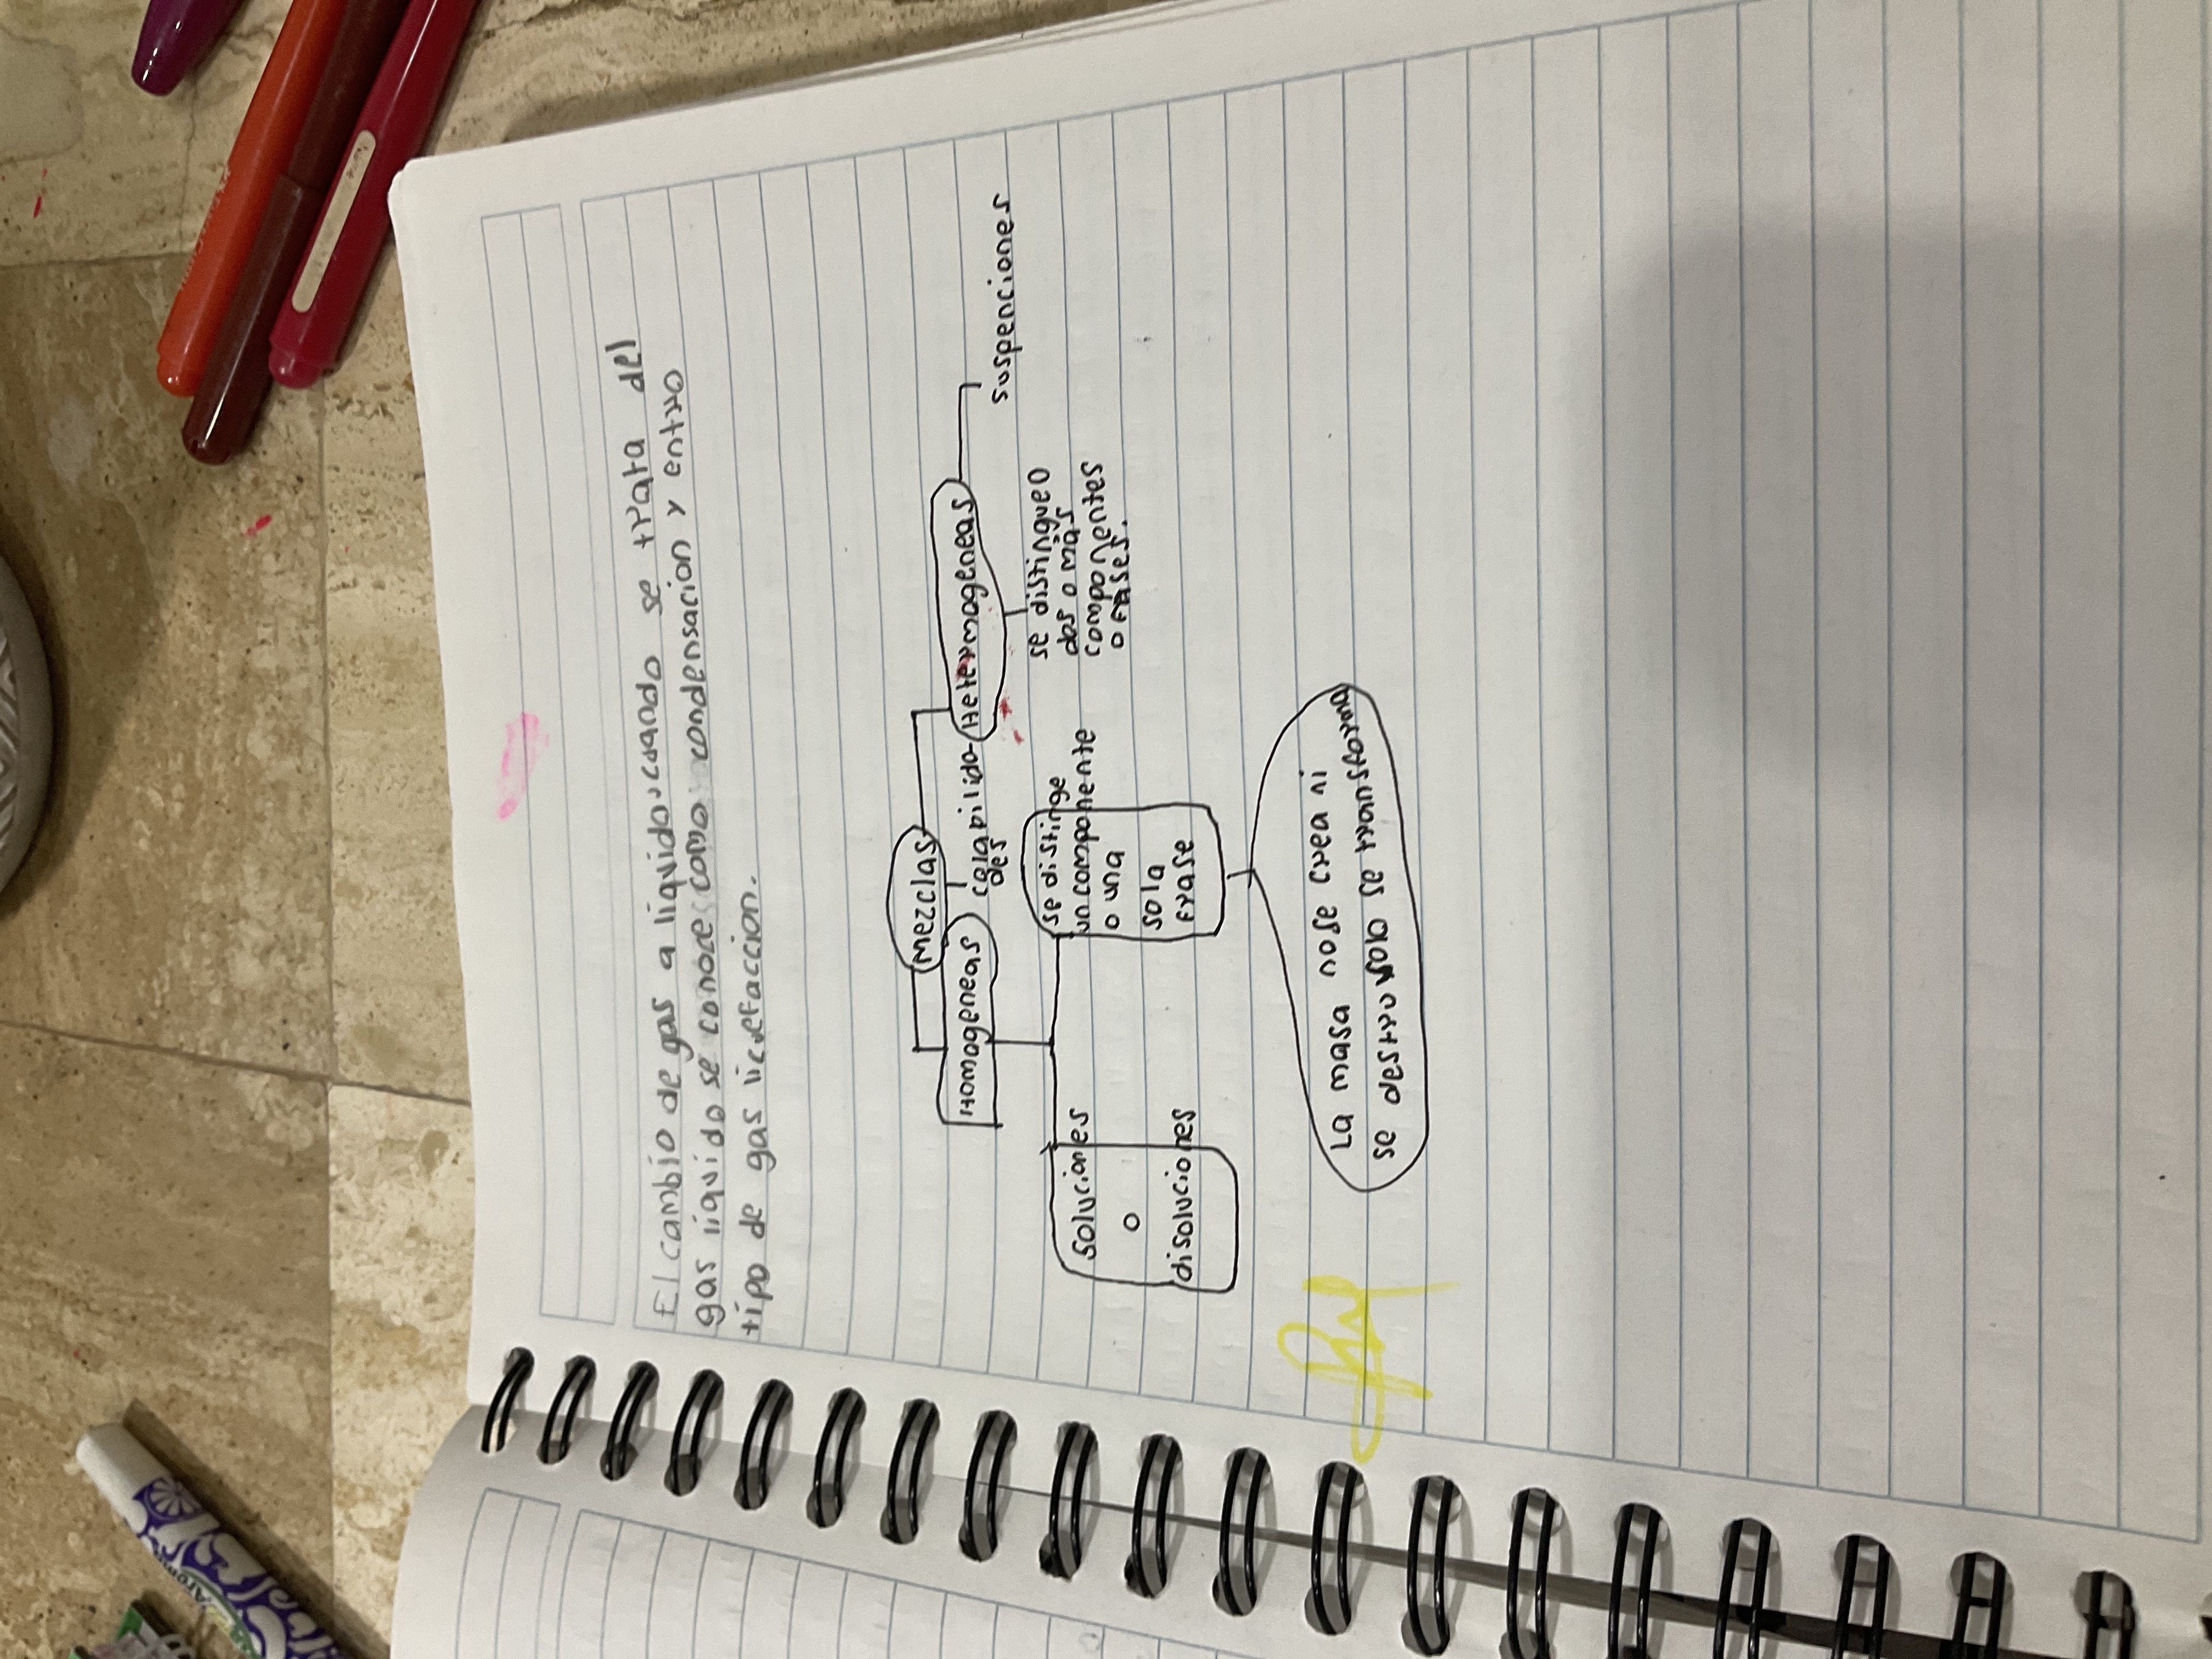 El cambio de gas a liquido, cuando se trata del
gas liquido se conoce como condensacion y entro
tipo de gas licuefaccion.
Mezclas
Homogeneas
Heteromogeneas
suspenciones
se distinge
un componente
o una
sola
frase
se distinguen
dos o mas
componentes
o frases.
soluciones
o
disoluciones
La masa nose crea ni
se destruye se transforma